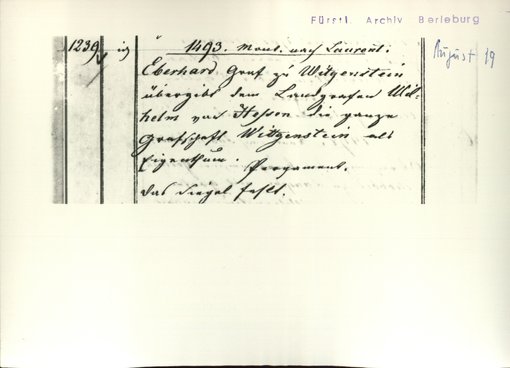 Fürstl. Archiv Berleburg
August 19
1239
1493. Mont. nach Laurent.
Eberhard Graf zu Witgenstein
übergibt dem Landgrafen Wil-
helm von Hessen die ganze
Grafschaft Witgenstein als
Eigenthum.
Pergament.
das Siegel fehlt.